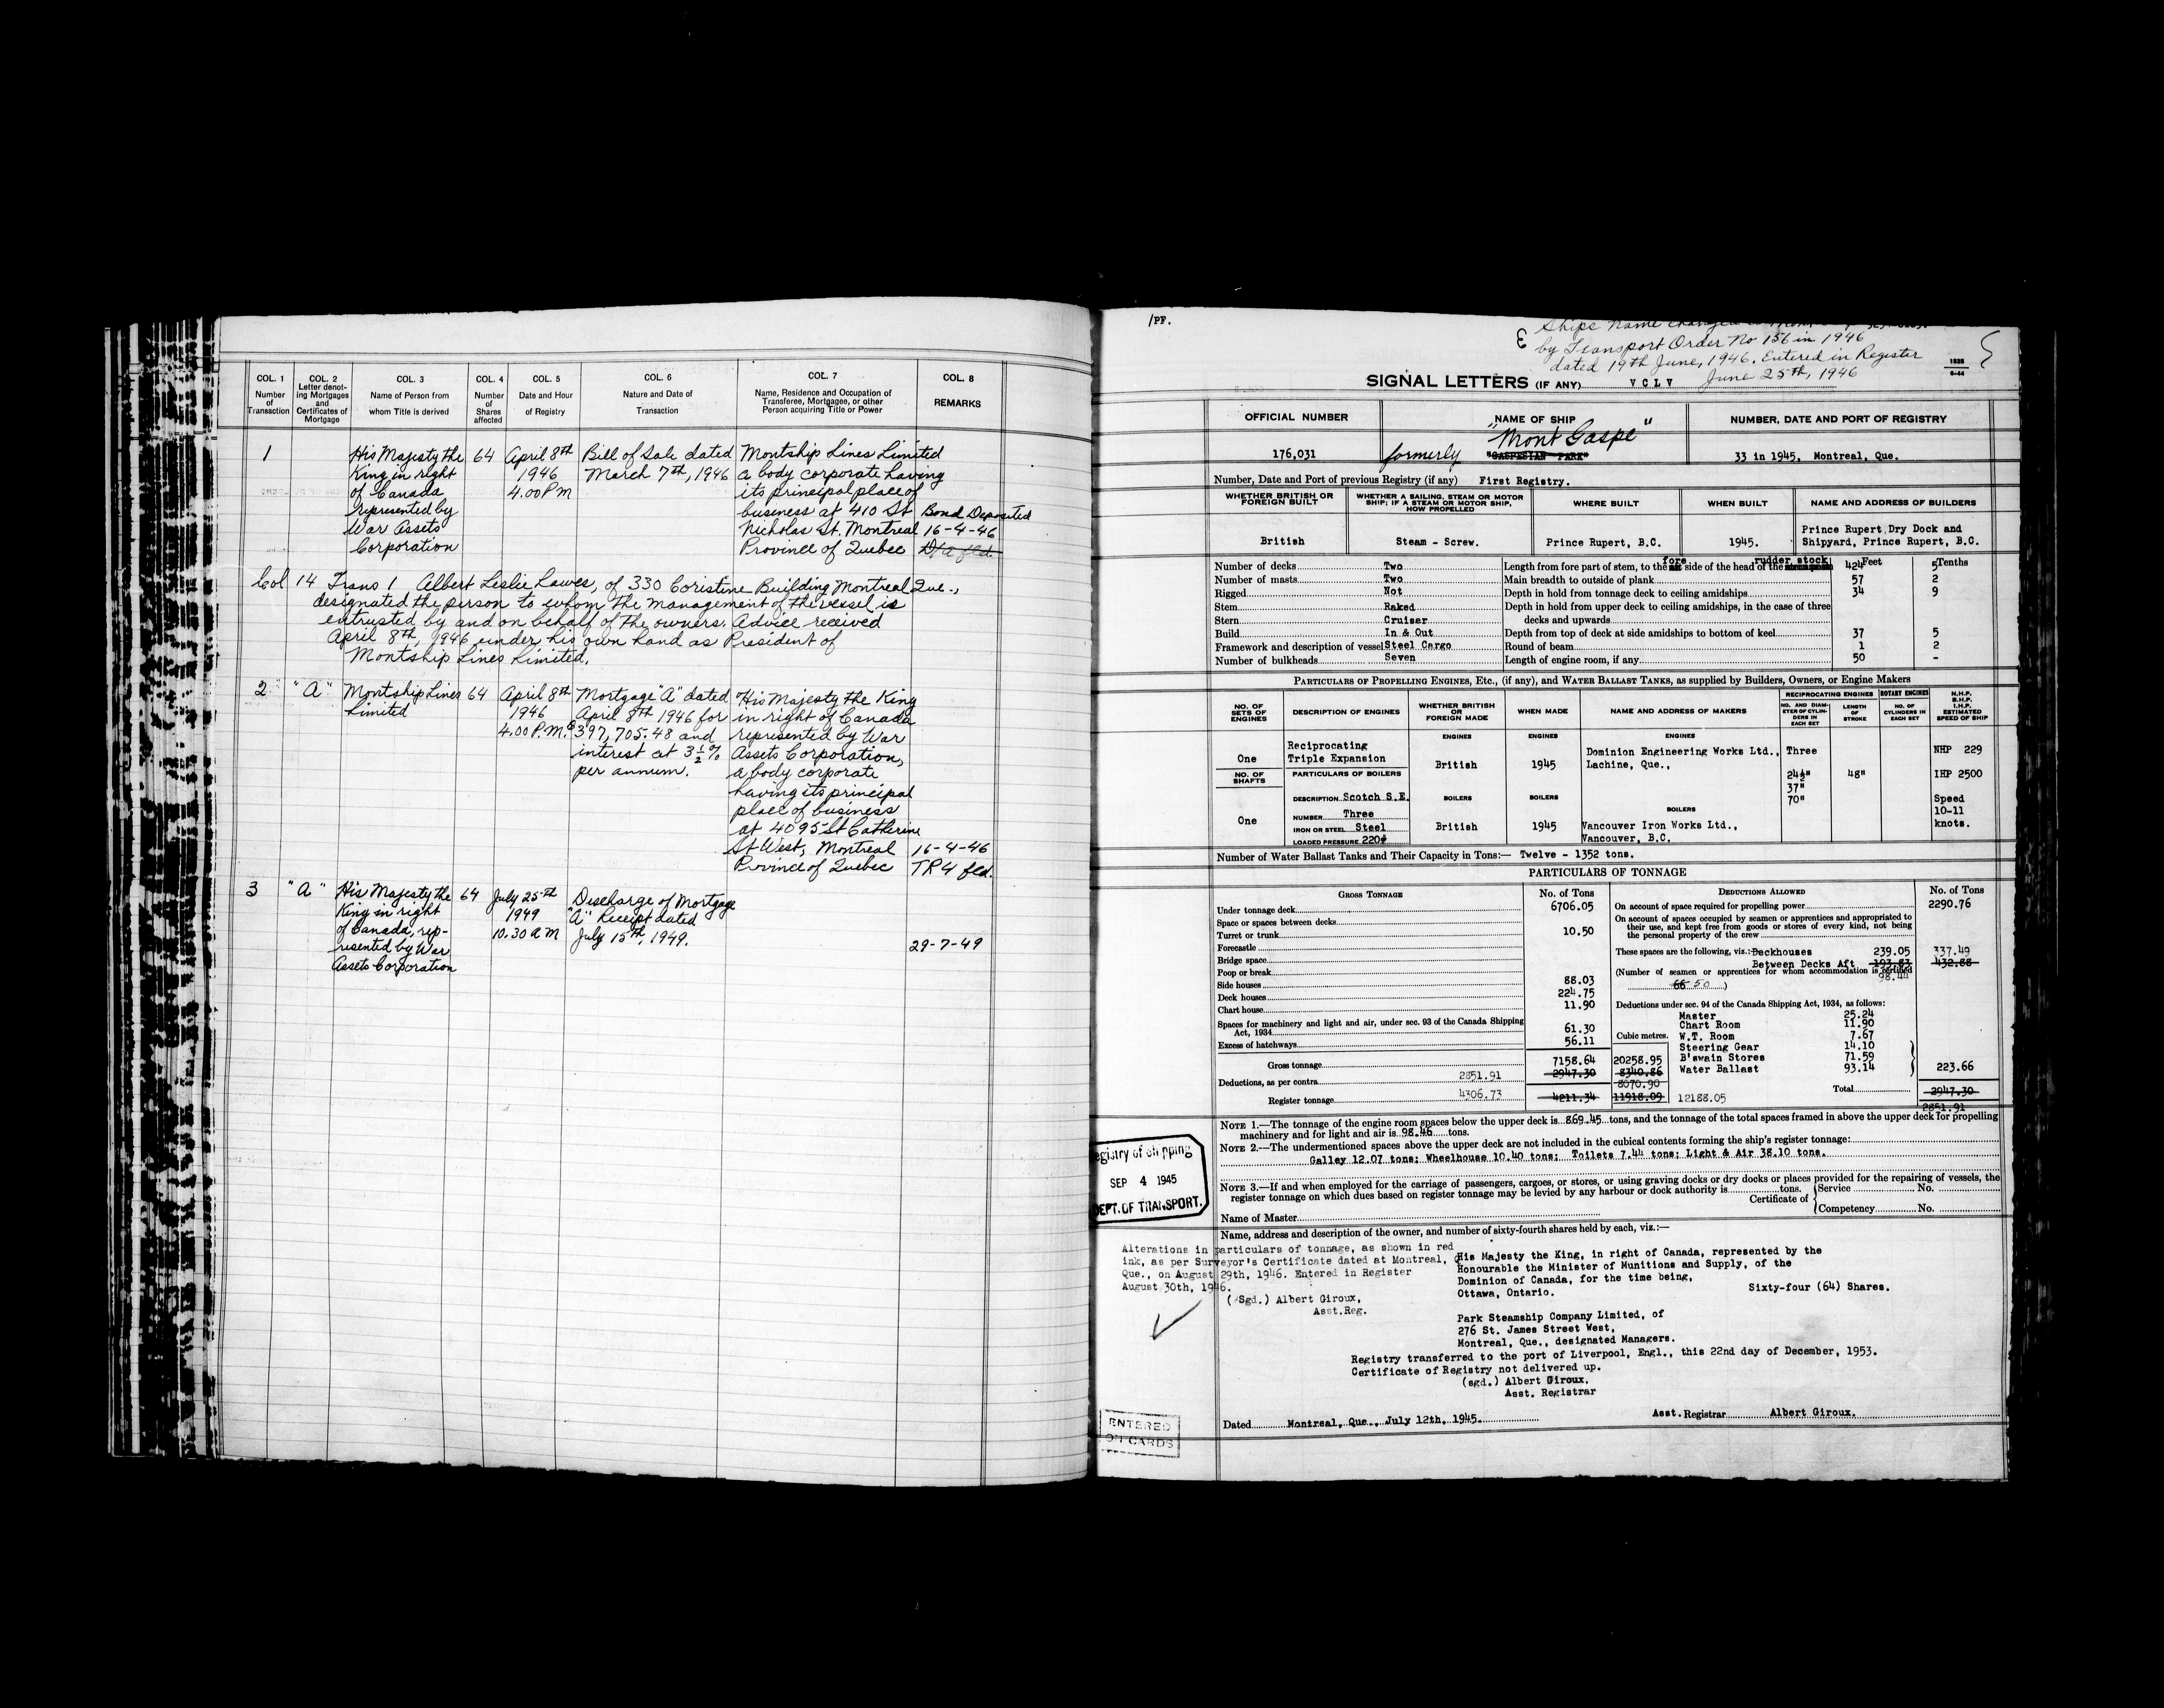 COL. 1
Number
of
Transaction
COL. 2
Letter denot-
ing Mortgages
and
Certificates of
Mortgage
COL. 3
Name of Person from
whom Title is derived
COL. 4
Number
of
Shares
affected
COL. 5
Date and Hour
of Registry
COL. 6
Nature and Date of
Transaction
COL. 7
Name, Residence and Occupation of
Transferee, Mortgagee, or other
Person acquiring Title or Power
COL. 8
REMARKS
1
His Majesty the
King in right
of Canada
represented by
War Assets
Corporation
64
April 8th
1946
4.00 P M
Bill of Sale dated
March 7th, 1946
Montship Lines Limited
a body corporate having
its principal place of
business at 410 St
Nicholas St. Montreal
Province of Quebec
Bond Deposited
16-4-46
Col 14 Trans 1 Albert Leslie Lawes, of 330 Coristine Building Montreal Que.,
designated the person to whom the management of the vessel is
entrusted by and on behalf of the owners. Advice received
April 8th, 1946 under his own hand as President of
Montship Lines Limited.
2
"A"
Montship Lines
Limited
64
April 8th
1946
4.00 P.M.
Mortgage "A" dated
April 8th 1946 for
$397,705.48 and
interest at 3½%
per annum.
His Majesty the King
in right of Canada
represented by War
Assets Corporation,
a body corporate
having its principal
place of business
at 4095 St Catherine
St West, Montreal
Province of Quebec
16-4-46
TR4 fld.
3
"A"
His Majesty the
King in right
of Canada, rep-
resented by War
Assets Corporation
64
July 25th
1949
10.30 A M
Discharge of Mortgage
"A" Receipt dated
July 15th, 1949.
29-7-49
/PF.
Ships name changed
by Transport Order No 156 in 1946
dated 19th June, 1946. Entered in Register
June 25th, 1946
1535
6-44
SIGNAL LETTERS (IF ANY) V C L V
OFFICIAL NUMBER
NAME OF SHIP
NUMBER, DATE AND PORT OF REGISTRY
"Mont Gaspe"
176,031
formerly
"GASPESIAN PARK"
33 in 1945, Montreal, Que.
Number, Date and Port of previous Registry (if any) First Registry.
WHETHER BRITISH OR
FOREIGN BUILT
WHETHER A SAILING, STEAM OR MOTOR
SHIP; IF A STEAM OR MOTOR SHIP,
HOW PROPELLED
WHERE BUILT
WHEN BUILT
NAME AND ADDRESS OF BUILDERS
British
Steam - Screw.
Prince Rupert, B.C.
1945.
Prince Rupert Dry Dock and
Shipyard, Prince Rupert, B.C.
Number of decks Two
Number of masts Two
Rigged Not
Stem Raked
Stern Cruiser
Build In & Out
Framework and description of vessel Steel Cargo
Number of bulkheads Seven
Feet Tenths
Length from fore part of stem, to the fore side of the head of the rudder stock 424 5
Main breadth to outside of plank 57 2
Depth in hold from tonnage deck to ceiling amidships 34 9
Depth in hold from upper deck to ceiling amidships, in the case of three
decks and upwards
Depth from top of deck at side amidships to bottom of keel 37 5
Round of beam 1 2
Length of engine room, if any 50 -
PARTICULARS OF PROPELLING ENGINES, ETC., (if any), and WATER BALLAST TANKS, as supplied by Builders, Owners, or Engine Makers
NO. OF
SETS OF
ENGINES
DESCRIPTION OF ENGINES
WHETHER BRITISH
OR
FOREIGN MADE
WHEN MADE
NAME AND ADDRESS OF MAKERS
RECIPROCATING ENGINES
ROTARY ENGINES
NO. AND DIAM-
ETER OF CYLIN-
DERS IN
EACH SET
LENGTH
OF
STROKE
NO. OF
CYLINDERS IN
EACH SET
N.H.P.
B.H.P.
I.H.P.
ESTIMATED
SPEED OF SHIP
ENGINES
ENGINES
ENGINES
One
Reciprocating
Triple Expansion
British
1945
Dominion Engineering Works Ltd.,
Lachine, Que.,
Three
24½"
37"
70"
48"
NHP 229
IHP 2500
Speed
10-11
knots.
NO. OF
SHAFTS
One
PARTICULARS OF BOILERS
DESCRIPTION Scotch S.E.
NUMBER Three
IRON OR STEEL Steel
LOADED PRESSURE 220#
BOILERS
British
BOILERS
1945
BOILERS
Vancouver Iron Works Ltd.,
Vancouver, B.C.
Number of Water Ballast Tanks and Their Capacity in Tons:— Twelve - 1352 tons.
PARTICULARS OF TONNAGE
GROSS TONNAGE No. of Tons
Under tonnage deck 6706.05
Space or spaces between decks
Turret or trunk 10.50
Forecastle
Bridge space
Poop or break
Side houses 88.03
Deck houses 224.75
Chart house 11.90
Spaces for machinery and light and air, under sec. 93 of the Canada Shipping
Act, 1934 61.30
Excess of hatchways 56.11
Cubic metres.
Gross tonnage 7158.64 20258.95
Deductions, as per contra 2851.91 2947.30 8340.86
8070.90
Register tonnage 4306.73 4211.34 11918.09 12188.05
DEDUCTIONS ALLOWED No. of Tons
On account of space required for propelling power 2290.76
On account of spaces occupied by seamen or apprentices and appropriated to
their use, and kept free from goods or stores of every kind, not being
the personal property of the crew
These spaces are the following, viz.:- Deckhouses 239.05 337.49
Between Decks Aft 193.83 432.88
(Number of seamen or apprentices for whom accommodation is certified 98.44
66 50 )
Deductions under sec. 94 of the Canada Shipping Act, 1934, as follows:
Master 25.24
Chart Room 11.90
W.T. Room 7.67
Steering Gear 14.10
B'swain Stores 71.59
Water Ballast 93.14 223.66
Total 2947.30
2851.91
NOTE 1.—The tonnage of the engine room spaces below the upper deck is 869.45 tons, and the tonnage of the total spaces framed in above the upper deck for propelling
machinery and for light and air is 98.46 tons.
NOTE 2.—The undermentioned spaces above the upper deck are not included in the cubical contents forming the ship's register tonnage:
Galley 12.07 tons; Wheelhouse 10.40 tons; Toilets 7.44 tons; Light & Air 38.10 tons.
NOTE 3.—If and when employed for the carriage of passengers, cargoes, or stores, or using graving docks or dry docks or places provided for the repairing of vessels, the
register tonnage on which dues based on register tonnage may be levied by any harbour or dock authority is tons.
Certificate of
Service No.
Competency No.
Name of Master
Registry of Shipping
SEP 4 1945
DEPT. OF TRANSPORT.
Name, address and description of the owner, and number of sixty-fourth shares held by each, viz.:—
Alterations in particulars of tonnage, as shown in red
ink, as per Surveyor's Certificate dated at Montreal,
Que., on August 29th, 1946. Entered in Register
August 30th, 1946.
(Sgd.) Albert Giroux,
Asst.Reg.
His Majesty the King, in right of Canada, represented by the
Honourable the Minister of Munitions and Supply, of the
Dominion of Canada, for the time being,
Ottawa, Ontario. Sixty-four (64) Shares.
Park Steamship Company Limited, of
276 St. James Street West,
Montreal, Que., designated Managers.
Registry transferred to the port of Liverpool, Engl., this 22nd day of December, 1953.
Certificate of Registry not delivered up.
(sgd.) Albert Giroux.
Asst. Registrar
Dated Montreal, Que., July 12th, 1945.
Asst. Registrar Albert Giroux.
ENTERED
ON CARDS